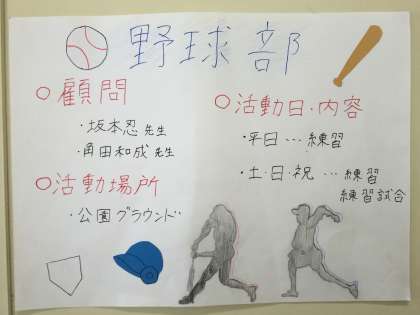 野球部
○顧問
・坂本忍先生
・角田和成先生
○活動場所
・公園グラウンド
○活動日・内容
・平日…練習
・土・日・祝…練習
練習試合